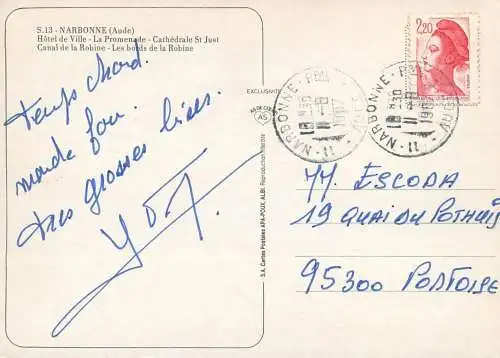 S.13 - NARBONNE (Aude)
Hôtel de Ville - La Promenade - Cathédrale St Just
Canal de la Robine - Les bords de la Robine
Temps chaud.
monde fou.
très grosses bises.
EXCLUSIVITÉ
AS DE CŒUR
AS
S.A. Cartes Postales APA-POUX, ALBI. Reproduction interdite
2,20
NARBONNE - PPAL
1987
AUDE
11
NARBONNE - PPAL
1987
AUDE
11
MM. ESCODA
19 QUAI DU POTHUIS
95300 PONTOISE